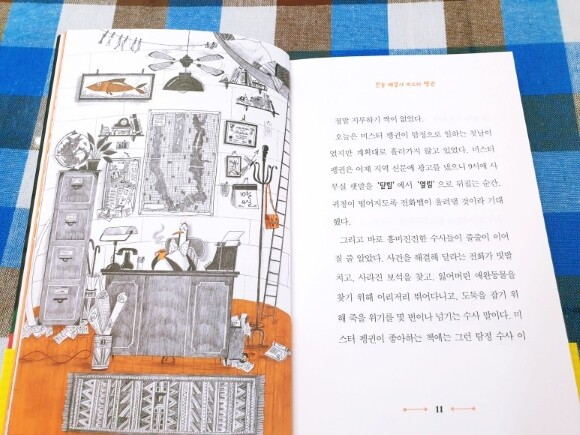 만능 해결사 미스터 펭귄
정말 지루하기 짝이 없었다.
오늘은 미스터 펭귄이 탐정으로 일하는 첫날이
었지만 계획대로 흘러가지 않고 있었다. 미스터
펭귄은 어제 지역 신문에 광고를 냈으니 9시에 사
무실 팻말을 '닫힘'에서 '열림'으로 뒤집는 순간,
귀청이 떨어지도록 전화벨이 울려댈 것이라 기대
했다.
그리고 바로 흥미진진한 수사들이 줄줄이 이어
질 줄 알았다. 사건을 해결해 달라는 전화가 빗발
치고, 사라진 보석을 찾고, 잃어버린 애완동물을
찾기 위해 이리저리 뛰어다니고, 도둑을 잡기 위
해 죽을 위기를 몇 번이나 넘기는 수사 말이다. 미
스터 펭귄이 좋아하는 책에는 그런 탐정 수사 이
11